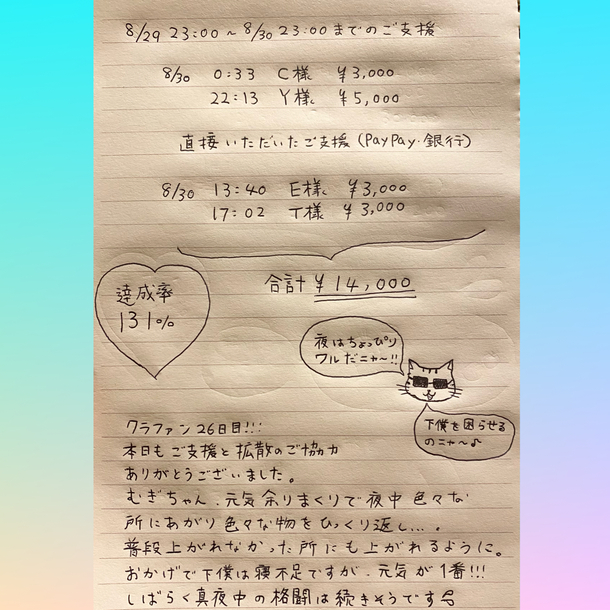 8/29 23:00～8/30 23:00までのご支援
8/30 0:33 C様 ¥3,000
22:13 Y様 ¥5,000
直接いただいたご支援(PayPay・銀行)
8/30 13:40 E様 ¥3,000
17:02 T様 ¥3,000
合計 ¥14,000
達成率
131%
夜はちょっぴり
ワルだニャ〜!!
下僕を困らせる
のニャ〜♪
クラファン26日目!!!
本日もご支援と拡散のご協力
ありがとうございました。
むぎちゃん、元気余りまくりで夜中色々な
所にあがり色々な物をひっくり返し...。
普段上がれなかった所にも上がれるように。
おかげで下僕は寝不足ですが、元気が1番!!!
しばらく真夜中の格闘は続きそうです